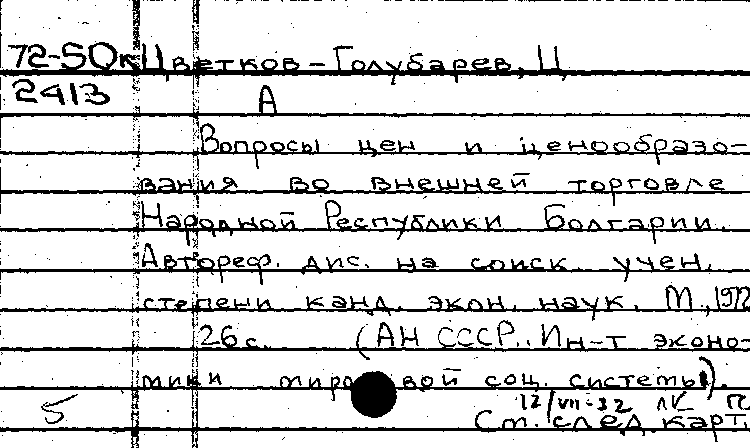 72-50к Цветков-Голубарев, Ц
2413 А
Вопросы цен и ценообразо-
вания во внешней торговле
Народной Республики Болгарии.
Автореф. дис. на соиск. учен.
степени канд. экон. наук. М., 1972
26 с. (АН СССР. Ин-т эконо-
мики мировой соц. системы).
5
См. след. карт